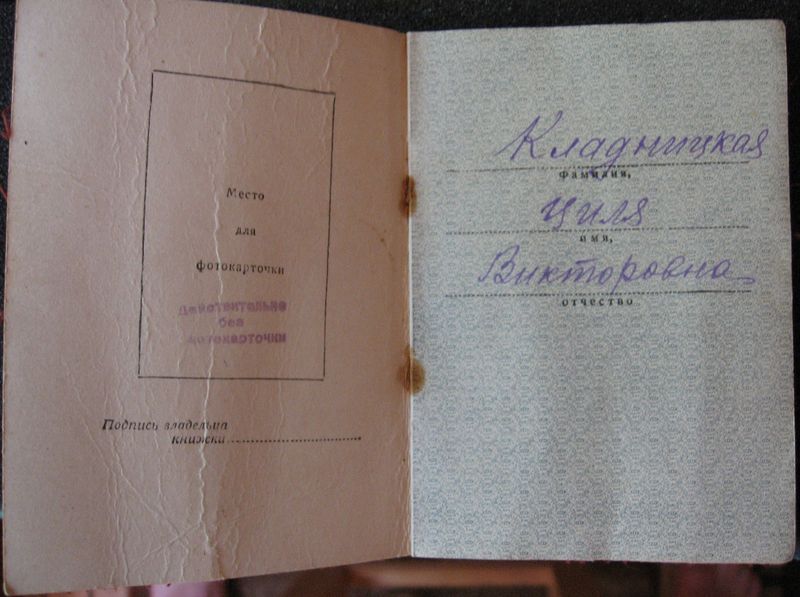 Место
для
фотокарточки
Действительно
без
фотокарточки
Подпись владельца
книжки
Кладницкая
фамилия,
Циля
имя,
Викторовна
отчество